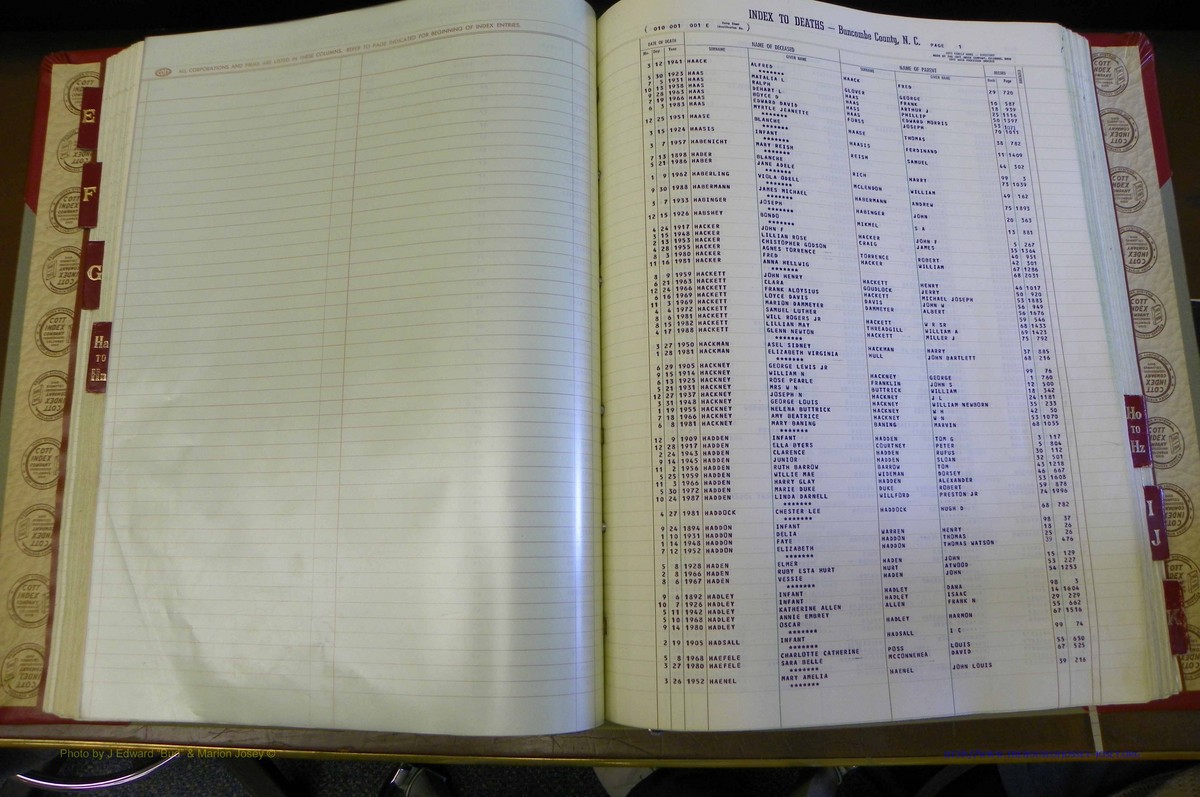 INDEX TO DEATHS — Buncombe County, N. C. PAGE 1
( 010 001 001 E )
ALL CORPORATIONS AND FIRMS ARE LISTED IN THESE COLUMNS, REFER TO PAGE INDICATED FOR BEGINNING OF INDEX ENTRIES.
DATE OF DEATH NAME OF DECEASED NAME OF PARENT
SURNAME GIVEN NAME SURNAME GIVEN NAME
3 12 1941 HAACK ALFRED HAACK FRED 720
*******
30 1923 HAAS NATALIA L GLOVER GEORGE 587
1931 HAAS RALPH HAAS FRANK 959
10 13 1938 HAAS HAAS ARTHUR J 25 1116
9 28 1963 HAAS ROYCE D HASS PHILLIP 50 1597
7 19 1966 HAAS EDWARD DAVIS HAAS EDWARD MORRIS
5 1983 HAAS MYRTLE JEANETTE FORST JOSEPH 70 1011
*******
12 25 1951 HAASE BLANCHE HAASE THOMAS 38 782
*******
3 15 1924 HAASIS INFANT HAASIS FERDINAND 11 1409
*******
3 7 1957 HABENICHT MARY REISH REISH SAMUEL 44 302
*******
7 13 1898 HABER BLANCHE 99 3
5 21 1986 HABER JANE ADELE RICH HARRY 73 1039
*******
1 9 1962 HABERLING VIOLA ODELL MCLENDON WILLIAM 49 162
*******
9 30 1988 HABERMANN JAMES MICHAEL HABERMANN ANDREW 75 1893
*******
3 7 1933 HABINGER JOSEPH HABINGER JOHN 20 363
*******
12 15 1926 HADSHEY BONBO MIKMEL S A 13 881
*******
4 24 1917 HACKER JOHN F HACKER JOHN F 5 267
3 15 1948 HACKER LILLIAN ROSE CRAIG JAMES 35 1364
2 13 1953 HACKER CHRISTOPHER GODSON 40 951
4 28 1955 HACKER AGNES TORRENCE TORRENCE ROBERT 42 301
8 3 1980 HACKER FRED HACKER WILLIAM 67 1286
11 16 1981 HACKER ANNA HELLWIG 68 2031
*******
8 9 1959 HACKETT JOHN HENRY HACKETT HENRY 46 1037
6 21 1963 HACKETT CLARA GOUDLOCK JERRY 50 920
12 24 1966 HACKETT FRANK ALOYSIUS HACKETT MICHAEL JOSEPH 53 1883
6 16 1969 HACKETT LOYCE DAVIS DAVIS JOHN W 56 949
11 3 1969 HACKETT MARION DAMMEYER DAMMEYER ALBERT 56 1676
4 4 1972 HACKETT SAMUEL LUTHER 59 546
8 8 1981 HACKETT WILL ROGERS JR HACKETT W R SR 68 1433
8 15 1982 HACKETT LILLIAN MAY THREADGILL WILLIAM A 69 1423
4 17 1988 HACKETT GLENN NEWTON HACKETT MILLER J 75 792
*******
3 27 1950 HACKMAN ASEL SIDNEY HACKMAN HARRY 37 885
1 28 1981 HACKMAN ELIZABETH VIRGINIA HULL JOHN BARTLETT 68 216
*******
6 29 1905 HACKNEY GEORGE LEWIS JR 99 76
9 15 1914 HACKNEY WILLIAM N HACKNEY GEORGE 1 760
6 13 1925 HACKNEY ROSE PEARLE FRANKLIN JOHN S 12 500
5 21 1931 HACKNEY MRS W N BUTTRICK WILLIAM 18 342
12 27 1937 HACKNEY JOSEPH N HACKNEY J L 24 1181
1 31 1948 HACKNEY GEORGE LOUIS HACKNEY WILLIAM NEWBORN 35 233
1 19 1955 HACKNEY HELENA BUTTRICK HACKNEY W H 42 50
7 18 1966 HACKNEY AMY BEATRICE HACKNEY W N 53 1070
6 8 1981 HACKNEY MARY BANING BANING MARVIN 68 1055
*******
12 9 1909 HADDEN INFANT HADDEN TOM G 3 117
12 28 1917 HADDEN ELLA BYERS COURTNEY PETER 5 804
2 24 1943 HADDEN CLARENCE HADDEN RUFUS 30 112
9 14 1945 HADDEN JUNIOR HADDEN SLOAN 32 501
11 2 1956 HADDEN RUTH BARROW BARROW TOM 43 1218
5 25 1959 HADDEN WILLIE MAE WIDEMAN DORSEY 46 667
11 3 1966 HADDEN HARRY GLAY HADDEN ALEXANDER 53 1608
5 30 1972 HADDEN MARIE DUKE DUKE ROBERT 59 878
10 24 1987 HADDEN LINDA DARNELL WILLFORD PRESTON JR 74 1996
*******
4 27 1981 HADDOCK CHESTER LEE HADDOCK HUGH D 68 782
*******
9 24 1894 HADDON INFANT 98 37
1 10 1931 HADDON DELIA WARREN HENRY 18 26
1 14 1948 HADDON FAYE HADDON THOMAS 35 26
7 12 1952 HADDON ELIZABETH HADDON THOMAS WATSON 39 476
*******
5 8 1928 HADEN ELMER HADEN JOHN 15 129
2 8 1966 HADEN RUBY ESTA HURT HURT ATWOOD 53 227
8 6 1967 HADEN VESSIE HADEN JOHN 54 1253
*******
9 6 1892 HADLEY INFANT HADLEY DANA 98 3
10 7 1926 HADLEY INFANT HADLEY ISAAC 14 1604
5 11 1942 HADLEY KATHERINE ALLEN ALLEN FRANK N 29 229
5 10 1968 HADLEY ANNIE EMBREY 55 662
9 14 1980 HADLEY OSCAR HADLEY HARMON 67 1516
*******
2 19 1905 HADSALL INFANT HADSALL I C 99 74
*******
5 8 1968 HAEFELE CHARLOTTE CATHERINE POSS LOUIS 55 650
3 27 1980 HAEFELE SARA BELLE MCCONNEHEA DAVID 67 525
*******
3 26 1952 HAENEL MARY AMELIA HAENEL JOHN LOUIS 39 216
*******
E
F
G
Ha TO Hm
Ho TO Hz
I J
K
COTT INDEX COMPANY
Photo by J Edward "Bud" & Marion Josey ©